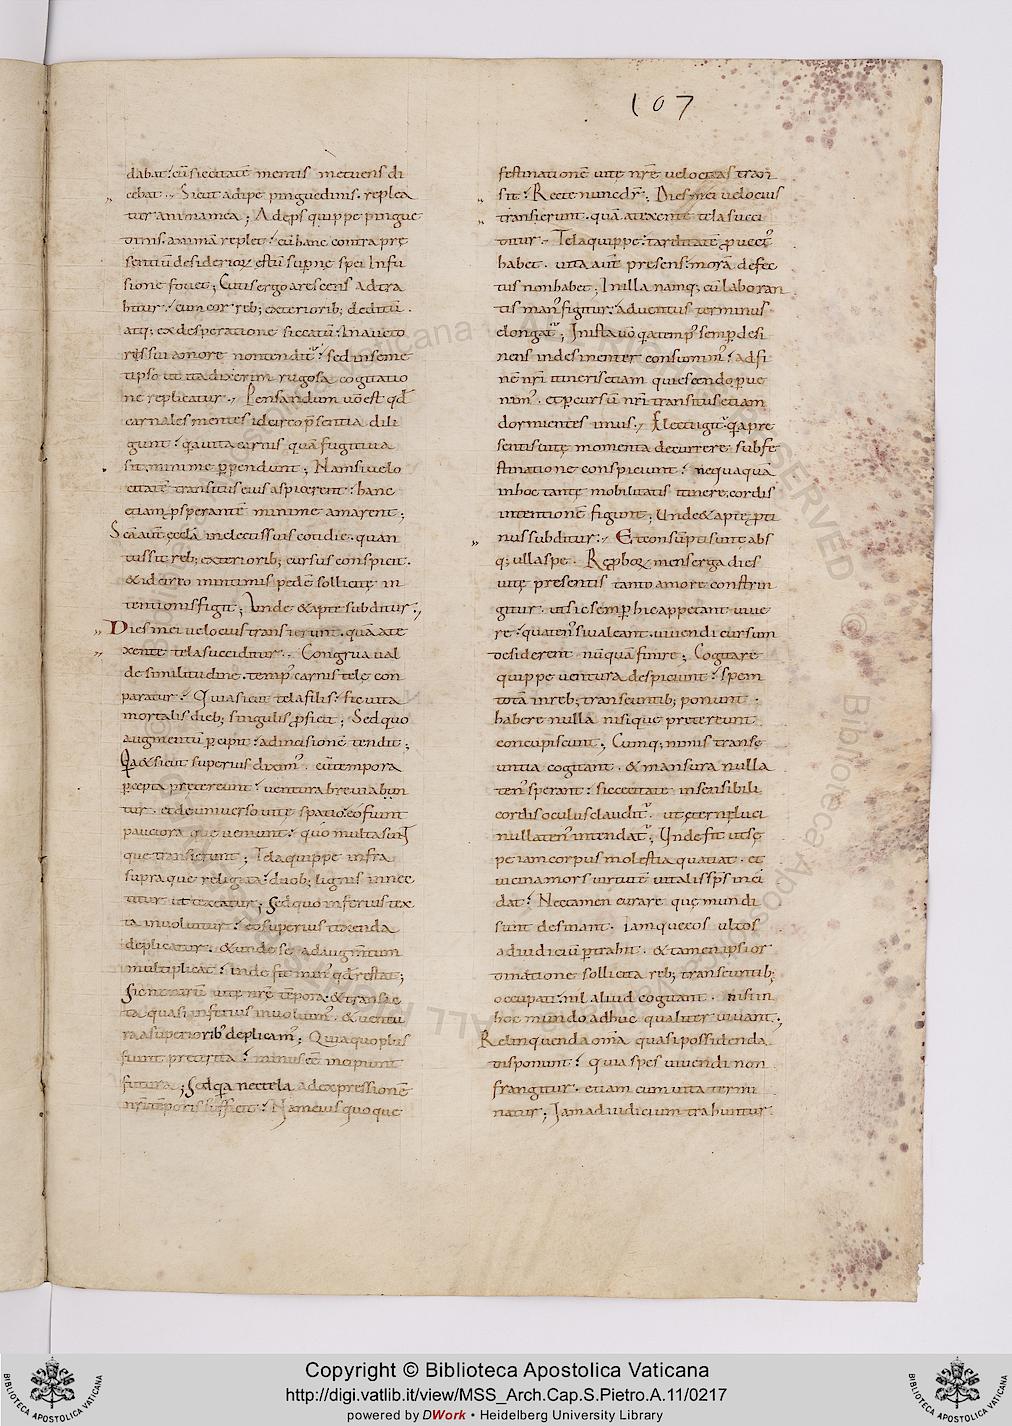 107
dabat; cũ siccitatẽ mentis metuens di
cebat., Sicut adipe pinguedinis. replea
tur anima mea; Adeps quippe pingue
dinis. animã replet; cũ hanc contra pre
sentiũ desiderioꝝ estũ supne spei Infu
sione fouet; Cuius ergo arescens adtra
hitur; cum cor reb; exteriorib; deditũ.
atq; ex desperatione siccatũ; In aucto
ris sui amore non tenditꝰ; sed in seme
tipso ut ita dixerim rugosa cogitatio
ne replicatur., Pensandum uo est qd
carnales mentes idcirco psentia dili
gunt; qa uita carnis quã fugitiua
sit minime ppendunt; Nam si uelo
citatẽ transitus eius aspicerent; hanc
etiam psperantẽ minime amarent;
Sca aut eccla in electis suis cotidie. quan
tus sit reb; exteriorib; cursus conspicit.
& idcirco in intimis pedẽ sollicite in
tentionis figit; Unde & apte subditur;
Dies mei uelocius transierunt. quã a te
xente tela succiditur., Congrua ual
de similitudine. tempꝰ carnis tele con
paratur; Quia sicut tela filis; sic uita
mortalis dieb; singulis pficit; Sed quo
augmentũ pcipit; ad incisionẽ tendit;
Qa & sicut superius diximꝰ. cũ tempora
pcepta pretereunt; uentura breuiabun
tur. et de uniuerso uite spatio; eo fiunt
pauciora que ueniunt; quo multa sunt
que transierunt; Tela quippe infra
supraque religata; duob; lignis innec
titur ut texatur; Sed quo inferius tex
ta inuoluitur; eo superius texenda
deplicatur. & unde se ad augmtum
multiplicat; inde fit minꝰ qd restat;
Sic nimirũ uite nre tẽpora. & transac
ta quasi inferius inuoluimꝰ. & uentu
ra a superiorib; deplicamꝰ; Quia quo plus
fiunt preterita; minus eẽ incipiunt
futura; Sed qa nec tela ad expressionẽ
nri tẽporis sufficit; Nam eius quoque
festinationẽ uite nre uelocitas tran
sit; Recte nunc dr; Dies mei uelocius
transierunt. quã a texente tela succi
ditur., Tela quippe; tarditatẽ puectꝰ
habet. uita autẽ presens; morã defec
tus non habet; In illa namq; cũ laboran
tis manꝰ figitur; aduentus terminus
elongatꝰ; In ista uo qa tempꝰ semp desi
nens indesinenter consumimꝰ; ad fi
nẽ nri itineris etiam quiescendo perue
nimꝰ. et p cursũ nri transitus etiam
dormientes imus., Electi igitꝰ. qa pre
sentis uite momenta decurrere sub fe
stinatione conspiciunt; nequaquã
in hoc tante mobilitatis itinere; cordis
intentionẽ figunt; Unde & apte pti
nus subditur:, Et consũpti sunt abs
q; ulla spe. Repboꝝ mens erga dies
uite presentis tanto amore constrin
gitur. ut sic semp hic appetant uiue
re; quatenꝰ si ualeant. uiuendi cursum
desiderent nũquã finire; Cogitare
quippe uentura despiciunt; spem
totã in reb; transeuntib; ponunt.
habere nulla nisi que pretereunt
concupiscunt; Cumq; nimis transe
untia cogitant. & mansura nulla
tenꝰ sperant; sic cecitate insensibili
cordis oculus clauditꝰ. ut eterne luci
nullatenꝰ intendatꝰ; Unde fit ut se
pe iam corpus molestia quatiat. et
uicina mors uirtutẽ uitalis sps inci
dat; Nec tamen curare que mundi
sunt desinant. iamque eos ultor
ad iudiciũ ptrahit. & tamen ipsi or
dinatione sollicita reb; transeuntib;
occupati; nil aliud cogitant. nisi in
hoc mundo adhuc qualiter uiuant;
Relinquenda omia quasi possidenda
disponunt; quia spes uiuendi non
frangitur. etiam cum uita termi
natur; Jam ad iudicium trahuntur
Copyright © Biblioteca Apostolica Vaticana
http://digi.vatlib.it/view/MSS_Arch.Cap.S.Pietro.A.11/0217
powered by DWork • Heidelberg University Library